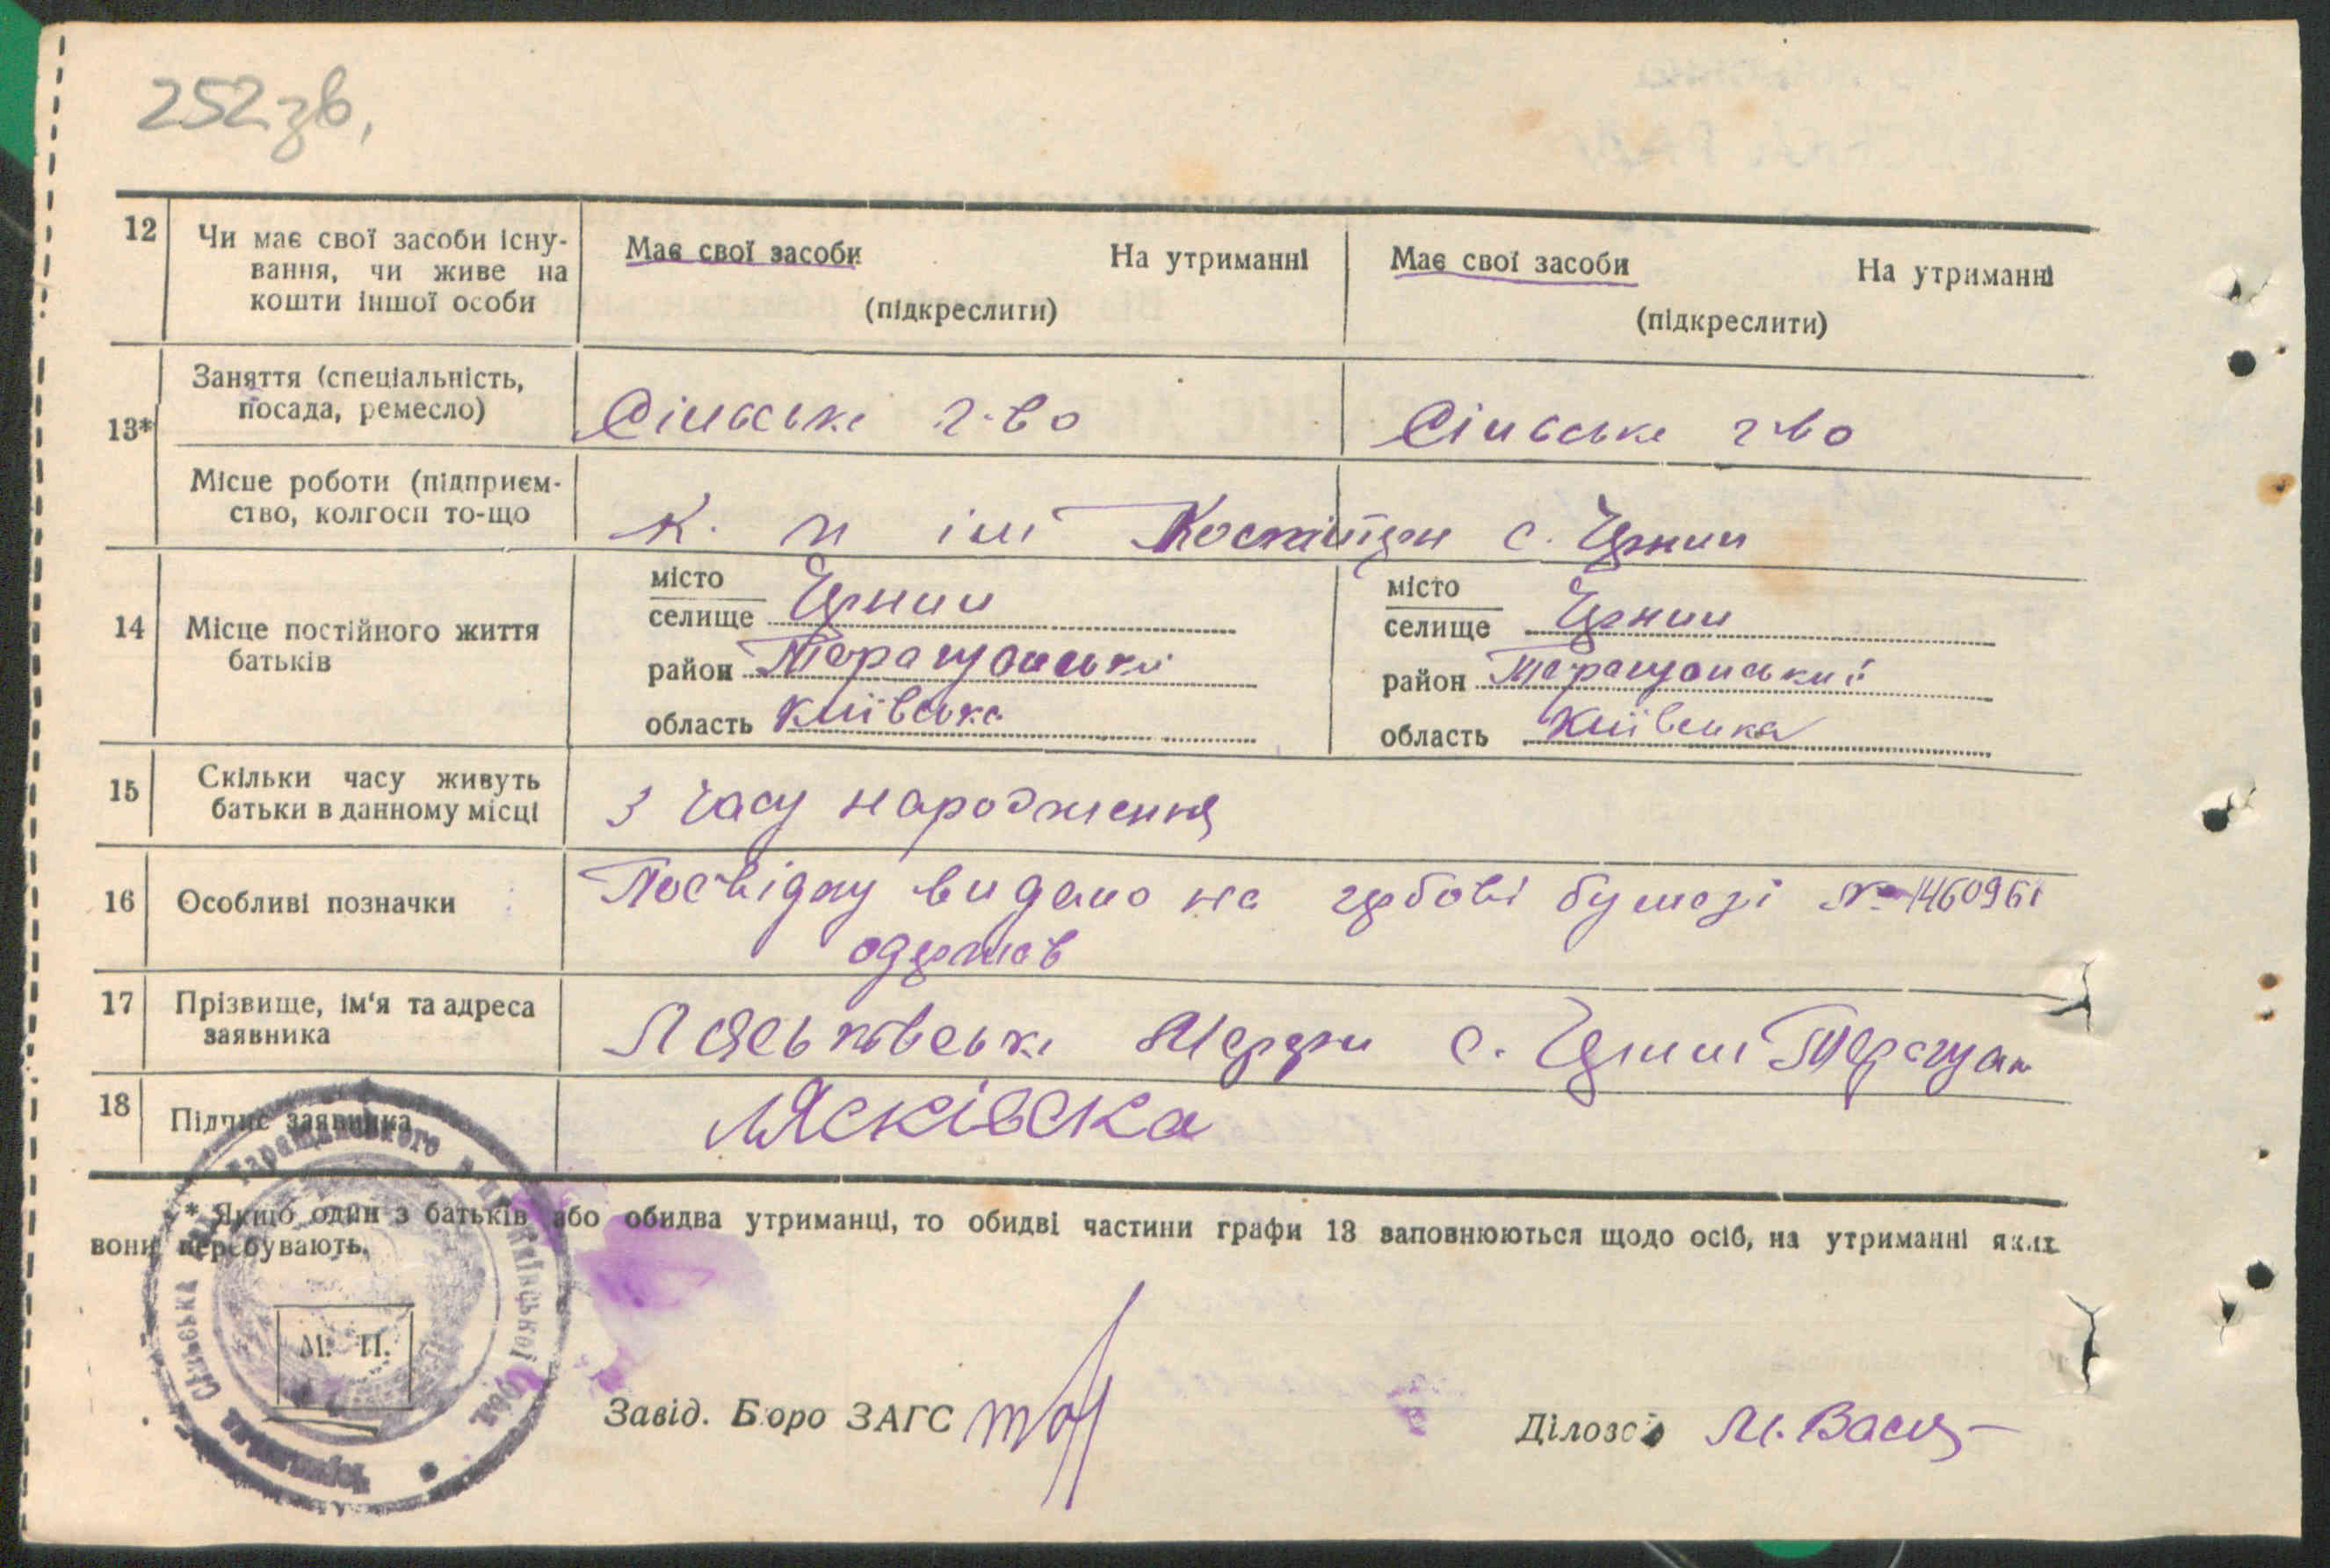 252зв.
12 Чи має свої засоби існу- Має свої засоби На утриманні Має свої засоби На утриманні
вання, чи живе на
кошти іншої особи (підкреслити) (підкреслити)
13* Заняття (спеціальність,
посада, ремесло) Сільське г-во Сільське г-во
Місце роботи (підприєм-
ство, колгосп то-що К. п ім с.
14 Місце постійного життя
батьків
місто
селище
район Таращанський
область Київська
місто
селище
район Таращанський
область Київська
15 Скільки часу живуть
батьки в данному місці З часу народження
16 Особливі позначки Посвідку видано на гербові бумазі № 1460961
одержав
17 Прізвище, ім'я та адреса
заявника с.
18 Підпис заявника Лясківска
* Якщо один з батьків або обидва утриманці, то обидві частини графи 13 заповнюються щодо осіб, на утриманні яких
вони перебувають.
Таращанського
Київської
Сільська
М. П.
Завід. Бюро ЗАГС
Діловод М.